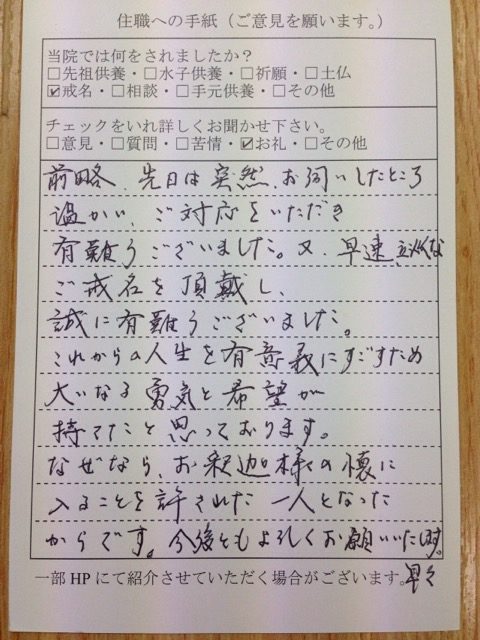 住職への手紙（ご意見を願います。）
当院では何をされましたか？
□先祖供養・□水子供養・□祈願・□土仏
☑戒名・□相談・□手元供養・□その他
チェックをいれ詳しくお聞かせ下さい。
□意見・□質問・□苦情・☑お礼・□その他
前略、先日は突然、お伺いしたところ
温かい、ご対応をいただき
有難うございました。又、早速立派な
ご戒名を頂戴し、
誠に有難うございました。
これからの人生を有意義にすごすため
大いなる勇気と希望が
持てたと思っております。
なぜなら、お釈迦様の懐に
入ることを許された一人となった
からです。今後ともよろしくお願いいたします。
早々
一部HPにて紹介させていただく場合がございます。